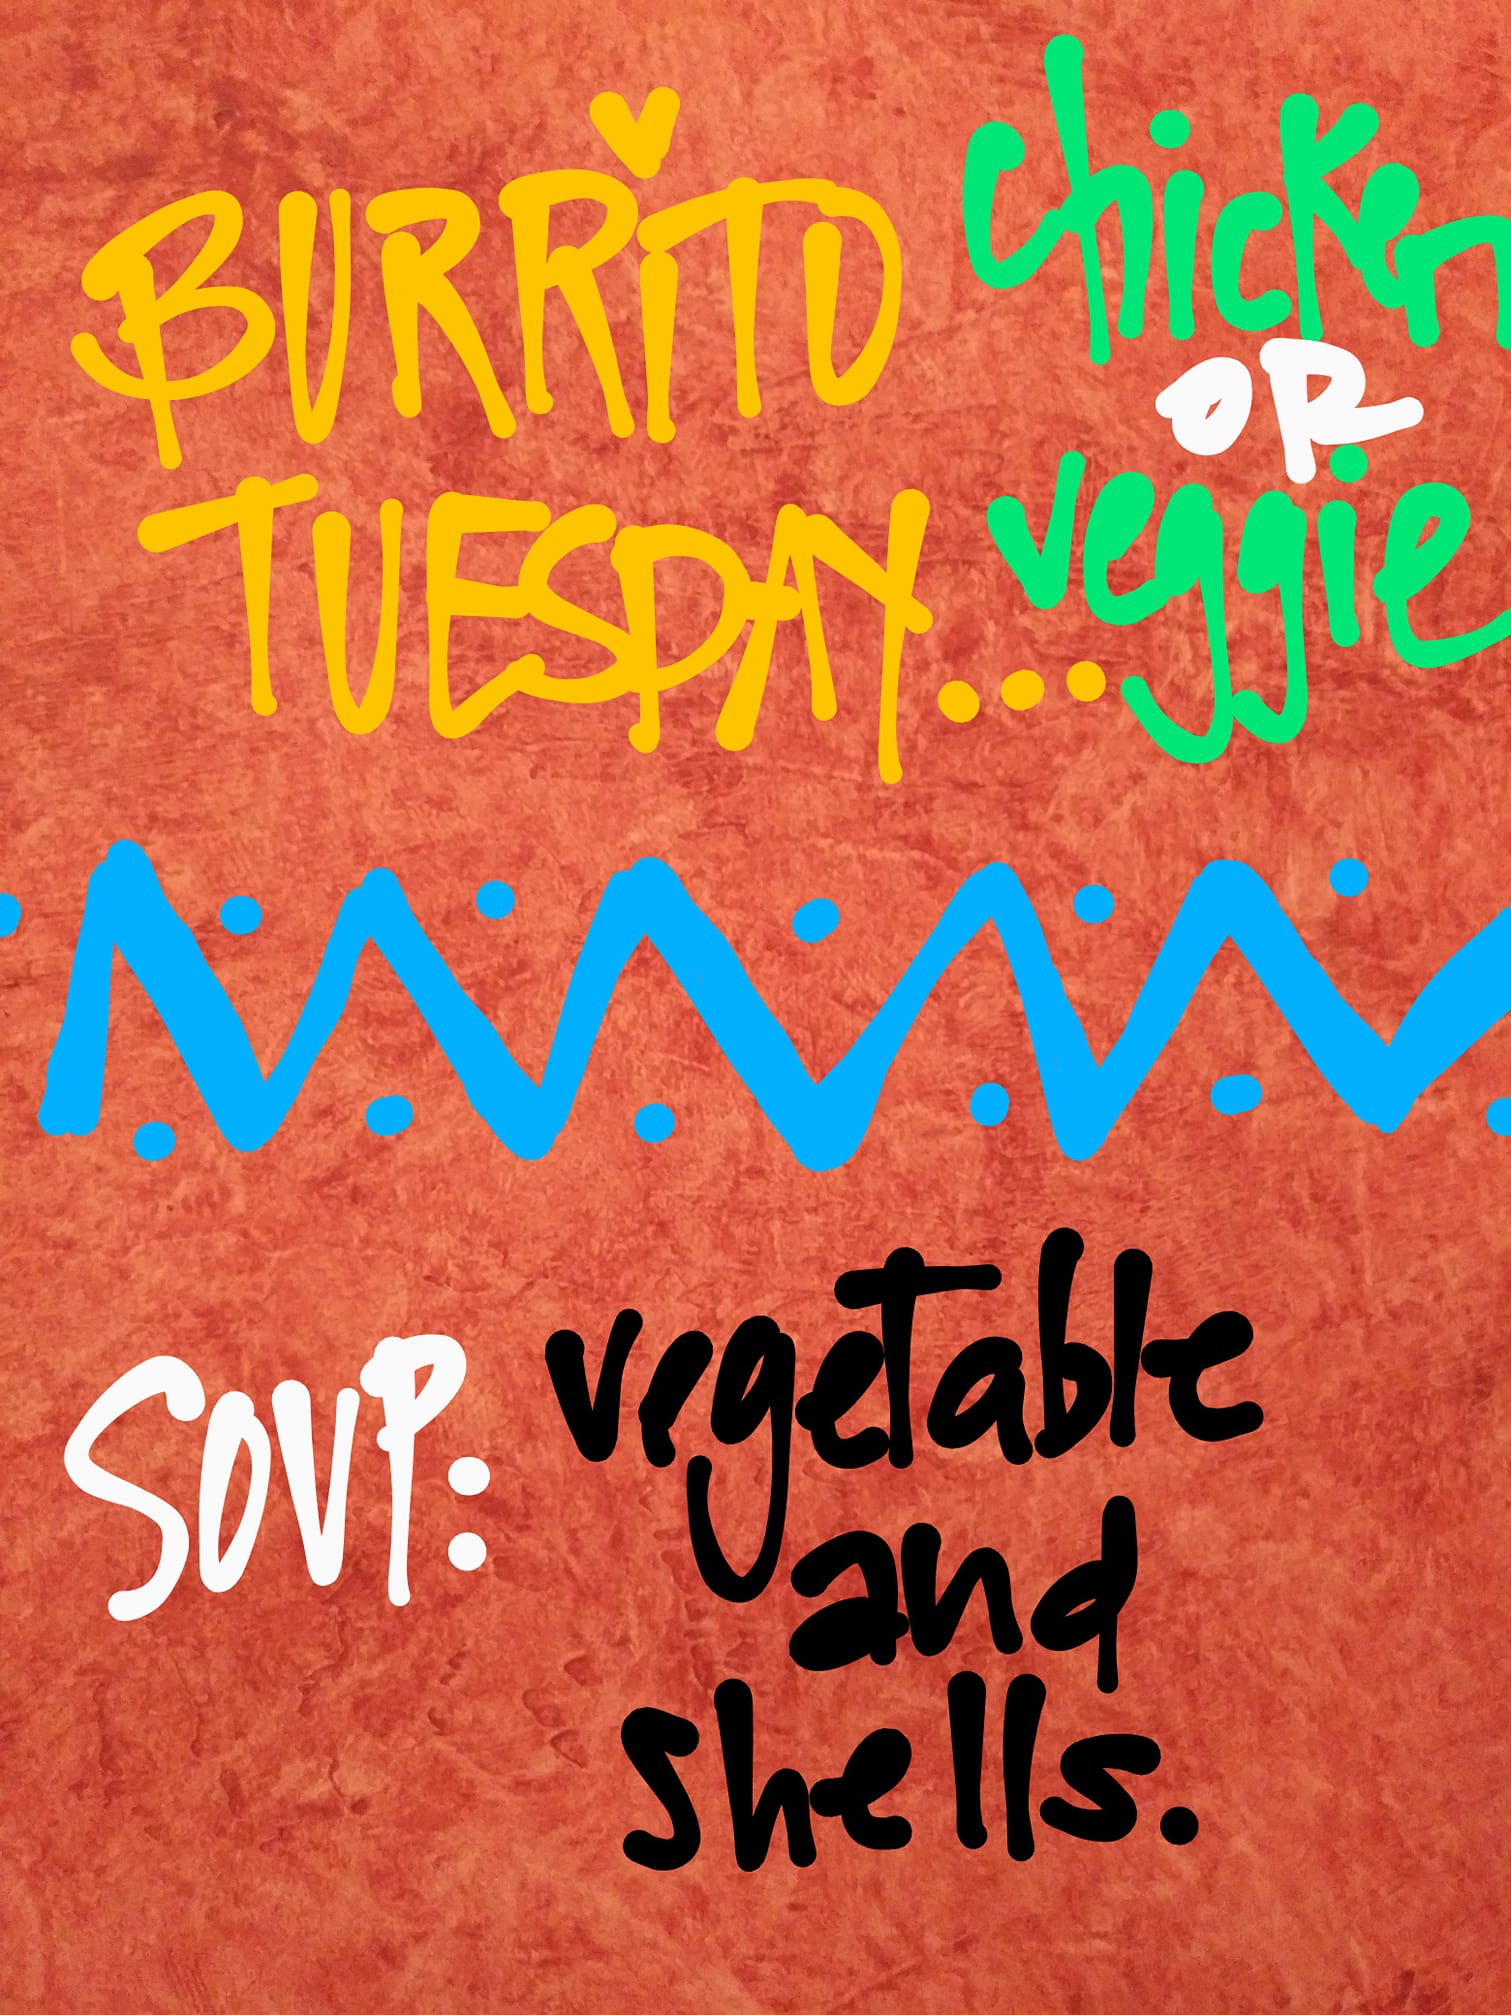 BURRiTO
TUESDAY...
chicken
OR
veggie
SOUP:
vegetable
and
shells.